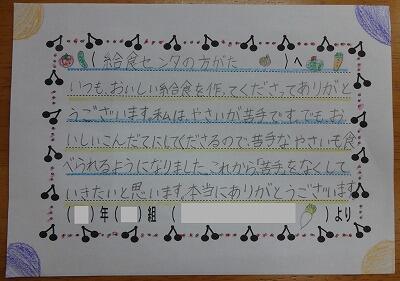 (給食センタの方がた)へ
いつも、おいしい給食を作ってくださってありがと
うございます。私は、やさいが苦手です。でも、お
いしいこんだてにしてくださるので、苦手なやさいも食
べられるようになりました。これから「苦手」をなくして
いきたいと思います。本当にありがとうございます。
( )年( )組 ( )より